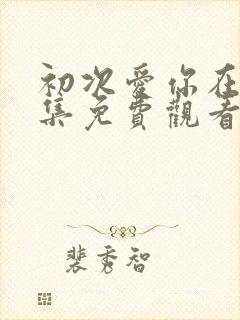 初次愛你在
集免費觀看
裴秀智